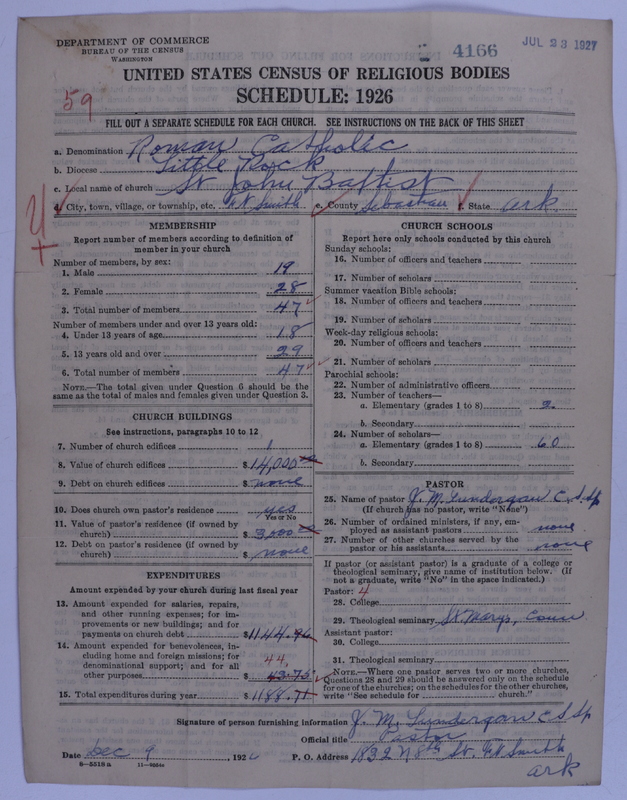 DEPARTMENT OF COMMERCE
BUREAU OF THE CENSUS
WASHINGTON
4166
JUL 23 1927
UNITED STATES CENSUS OF RELIGIOUS BODIES
SCHEDULE: 1926
59
FILL OUT A SEPARATE SCHEDULE FOR EACH CHURCH. SEE INSTRUCTIONS ON THE BACK OF THIS SHEET
a. Denomination Roman Catholic
b. Diocese Little Rock
c. Local name of church St John Baptist
d. City, town, village, or township, etc. Ft Smith e. County Sebastian f. State Ark
MEMBERSHIP
Report number of members according to definition of
member in your church
Number of members, by sex:
1. Male 19
2. Female 28
3. Total number of members 47
Number of members under and over 13 years old:
4. Under 13 years of age 18
5. 13 years old and over 29
6. Total number of members 47
NOTE.—The total given under Question 6 should be
same as the total of males and females given under Question 3.
CHURCH BUILDINGS
See instructions, paragraphs 10 to 12
7. Number of church edifices 1
8. Value of church edifices $14,000
9. Debt on church edifices $ none
10. Does church own pastor's residence yes
Yes or No
11. Value of pastor's residence (if owned by
church) $ 3,000
12. Debt on pastor's residence (if owned by
church) $ none
EXPENDITURES
Amount expended by your church during last fiscal year
13. Amount expended for salaries, repairs,
and other running expenses; for im-
provements or new buildings; and for
payments on church debt $1144.96
14. Amount expended for benevolences, in-
cluding home and foreign missions; for
denominational support; and for all
44.
other purposes $ 43.75
15. Total expenditures during year $1188.71
CHURCH SCHOOLS
Report here only schools conducted by this church
Sunday schools:
16. Number of officers and teachers
17. Number of scholars
Summer vacation Bible schools:
18. Number of officers and teachers
19. Number of scholars
Week-day religious schools:
20. Number of officers and teachers
21. Number of scholars
Parochial schools:
22. Number of administrative officers
23. Number of teachers—
a. Elementary (grades 1 to 8) 2
b. Secondary
24. Number of scholars—
a. Elementary (grades 1 to 8) 60
b. Secondary
PASTOR
25. Name of pastor J. M. Lundergan C. S. Sp
(If church has no pastor, write "None")
26. Number of ordained ministers, if any, em-
ployed as assistant pastors none
27. Number of other churches served by the
pastor or his assistants none
If pastor (or assistant pastor) is a graduate of a college or
theological seminary, give name of institution below. (If
not a graduate, write "No" in the space indicated.)
Pastor: 4
28. College
29. Theological seminary St. Marys, Conn
Assistant pastor:
30. College
31. Theological seminary
NOTE.—Where one pastor serves two or more churches,
Questions 28 and 29 should be answered only on the schedule
for one of the churches; on the schedules for the other churches,
write "See schedule for church."
Signature of person furnishing information J. M. Lundergan C S Sp
Official title Pastor
Date Dec 9, 1926 P. O. Address 1832 N 8th St. Ft Smith
8—5518 a
Ark